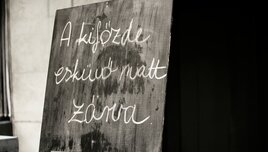 A kifőzde
esküvő matt
zárva